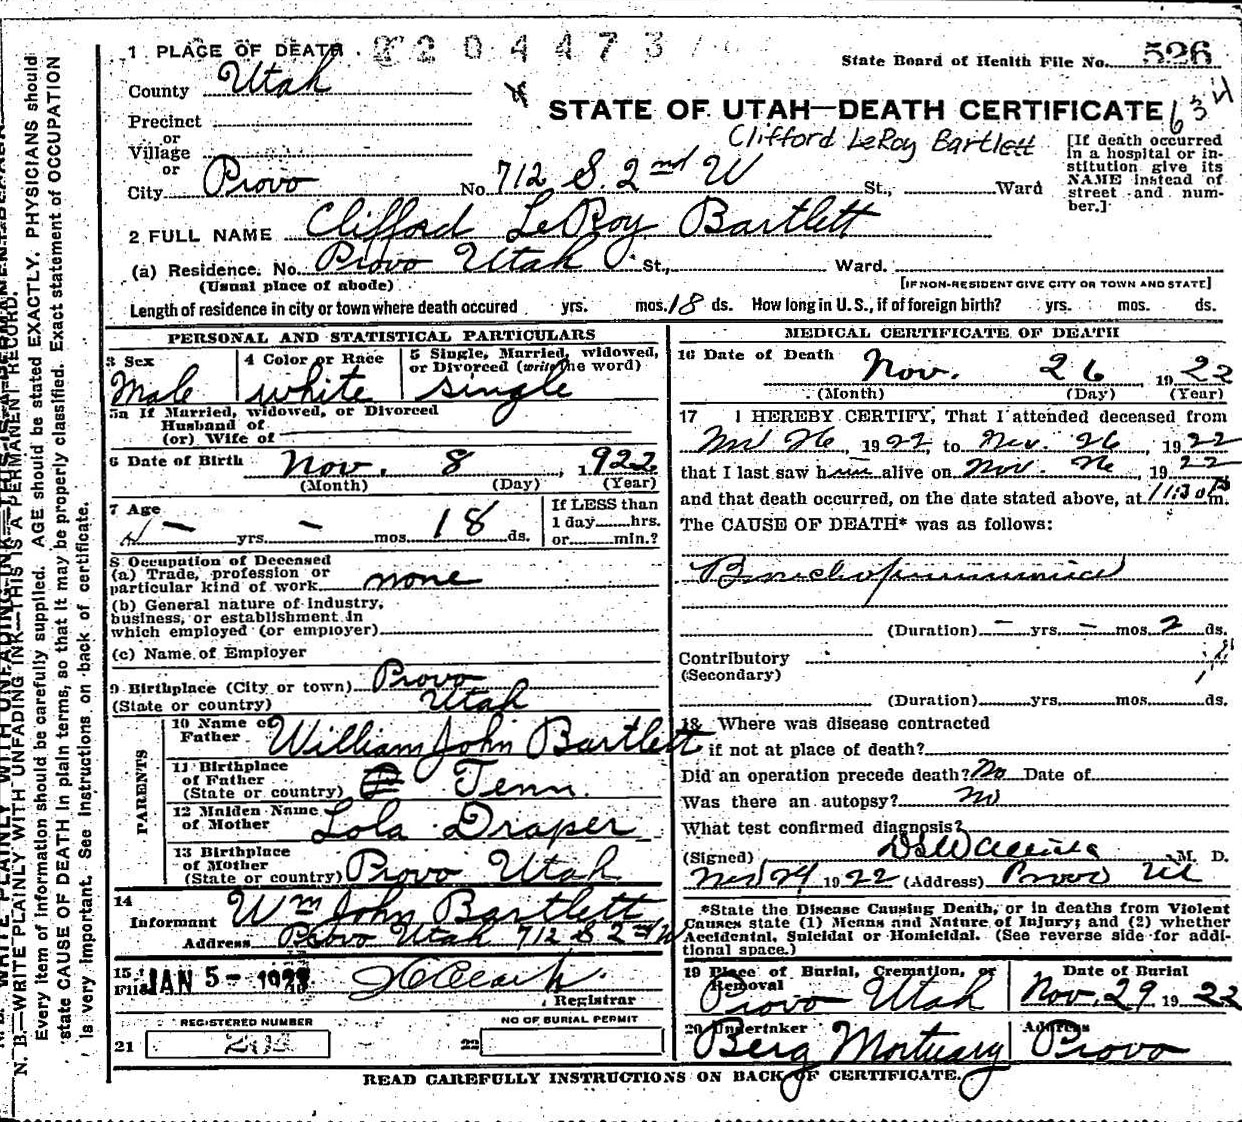 1 PLACE OF DEATH 2204473
State Board of Health File No. 526
County Utah
STATE OF UTAH—DEATH CERTIFICATE 634
Precinct
or
Village
or
Clifford LeRoy Bartlett
[If death occurred in a hospital or institution give its NAME instead of street and number.]
City Provo No. 712 S. 2nd W St., Ward
2 FULL NAME Clifford LeRoy Bartlett
(a) Residence. No. Provo Utah St., Ward.
(Usual place of abode) [IF NON-RESIDENT GIVE CITY OR TOWN AND STATE]
Length of residence in city or town where death occured yrs. mos. 18 ds. How long in U.S., if of foreign birth? yrs. mos. ds.
PERSONAL AND STATISTICAL PARTICULARS
3 Sex Male
4 Color or Race white
5 Single, Married, widowed, or Divorced (write the word) single
5a If Married, widowed, or Divorced
Husband of
(or) Wife of
6 Date of Birth Nov. 8, 1922
(Month) (Day) (Year)
7 Age — yrs. — mos. 18 ds.
If LESS than
1 day hrs.
or min.?
8 Occupation of Deceased
(a) Trade, profession or
particular kind of work none
(b) General nature of industry,
business, or establishment in
which employed (or employer)
(c) Name of Employer
9 Birthplace (City or town) Provo
(State or country) Utah
PARENTS
10 Name of
Father William John Bartlett
11 Birthplace
of Father
(State or country) Tenn.
12 Maiden Name
of Mother Lola Draper
13 Birthplace
of Mother
(State or country) Provo Utah
14
Informant Wm John Bartlett
Address Provo Utah 712 S 2nd W
15
Filed JAN 5- 1923
Registrar
REGISTERED NUMBER
21
NO OF BURIAL PERMIT
22
MEDICAL CERTIFICATE OF DEATH
16 Date of Death Nov. 26, 1922
(Month) (Day) (Year)
17 I HEREBY CERTIFY, That I attended deceased from
Nov 26, 1922, to Nov. 26, 1922
that I last saw him alive on Nov. 26, 1922
and that death occurred, on the date stated above, at 11:30 P m.
The CAUSE OF DEATH* was as follows:
Bronchopneumonia
(Duration) — yrs. — mos. 2 ds.
Contributory
(Secondary)
(Duration) yrs. mos. ds.
18 Where was disease contracted
if not at place of death?
Did an operation precede death? No Date of
Was there an autopsy? no
What test confirmed diagnosis?
(Signed) M. D.
1922 (Address) Provo Ut
*State the Disease Causing Death, or in deaths from Violent
Causes state (1) Means and Nature of Injury; and (2) whether
Accidental, Suicidal or Homicidal. (See reverse side for addi-
tional space.)
19 Place of Burial, Cremation, or
Removal Provo Utah
Date of Burial
Nov. 29 1922
20 Undertaker
Berg Mortuary
Address
Provo
READ CAREFULLY INSTRUCTIONS ON BACK OF CERTIFICATE.
N. B.—WRITE PLAINLY WITH UNFADING INK—THIS IS A PERMANENT RECORD.
Every item of information should be carefully supplied. AGE should be stated EXACTLY. PHYSICIANS should
state CAUSE OF DEATH in plain terms, so that it may be properly classified. Exact statement of OCCUPATION
is very important. See instructions on back of certificate.